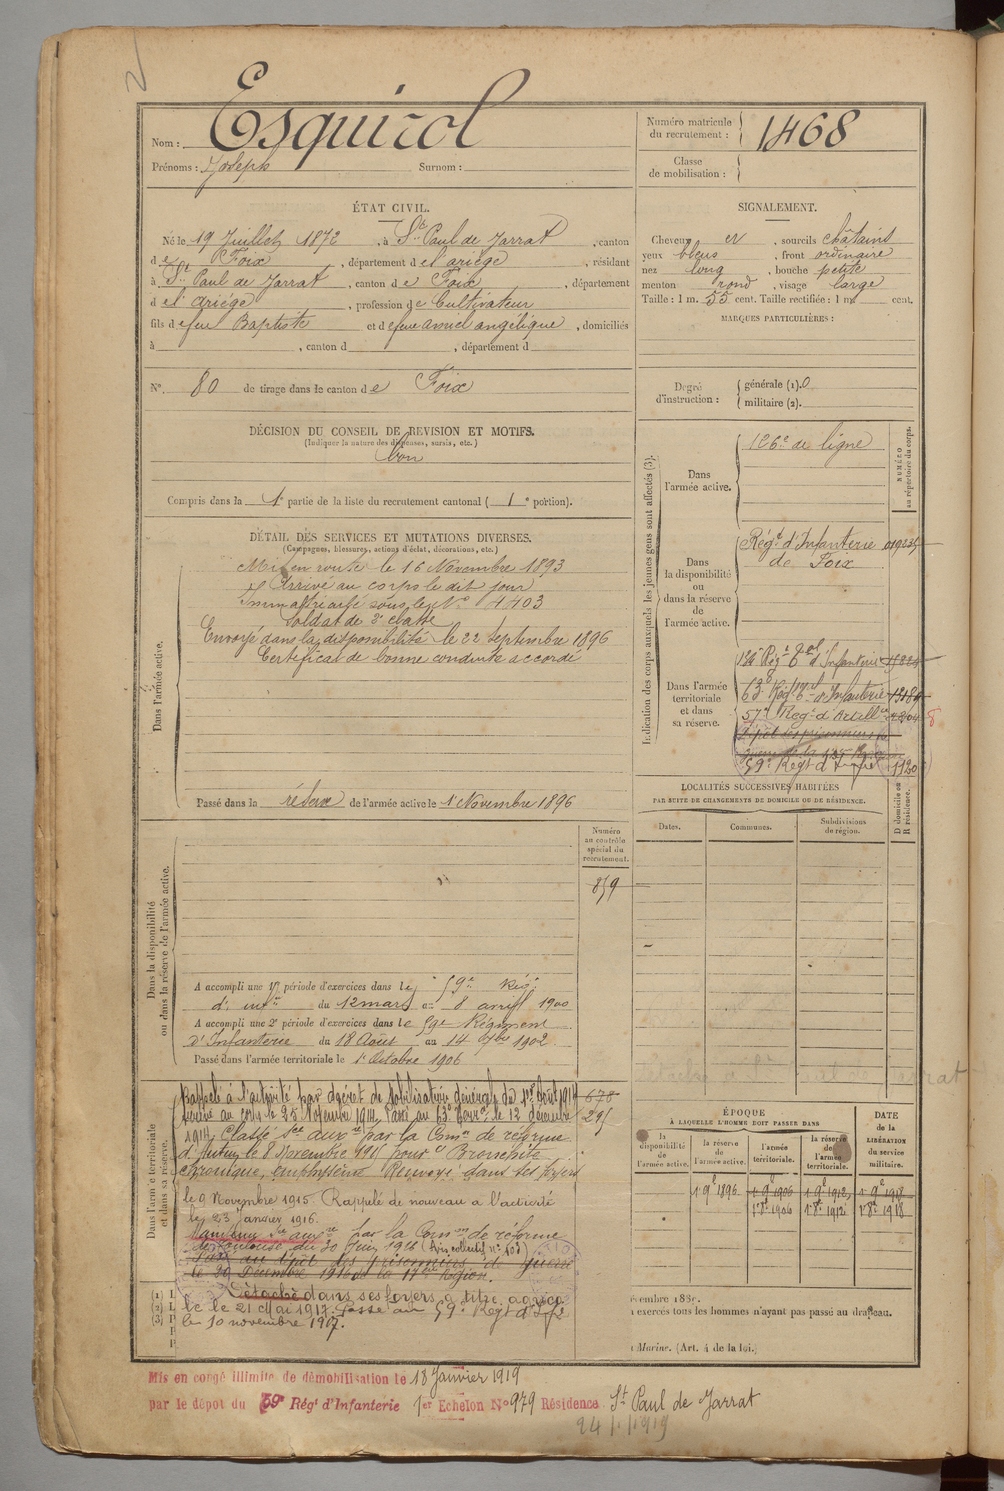 Esquirol
Nom :
Prénoms : Joseph Surnom :
Numéro matricule du recrutement : 1468
Classe de mobilisation :
ÉTAT CIVIL.
Né le 19 Juillet 1872, à St Paul de Jarrat, canton
de Foix, département de l'ariège, résidant
à St Paul de Jarrat, canton de Foix, département
de l'ariège, profession de Cultivateur
fils de feu Baptiste et de feue amiel angélique, domiciliés
à , canton d , département d
N° 80 de tirage dans le canton de Foix
SIGNALEMENT.
Cheveux et, sourcils châtains
yeux bleus, front ordinaire
nez long, bouche petite
menton rond, visage large
Taille : 1 m. 55 cent. Taille rectifiée : 1 m. cent.
MARQUES PARTICULIÈRES :
Degré d'instruction : générale (1). 0
militaire (2).
DÉCISION DU CONSEIL DE REVISION ET MOTIFS.
(Indiquer la nature des dispenses, sursis, etc.)
Bon
Compris dans la 1e partie de la liste du recrutement cantonal (1e portion).
DÉTAIL DES SERVICES ET MUTATIONS DIVERSES.
(Campagnes, blessures, actions d'éclat, décorations, etc.)
Dans l'armée active.
Mis en route le 16 Novembre 1893
Arrivé au corps le dit jour
Immatriculé sous le No 4403
Soldat de 2e classe
Envoyé dans la disponibilité le 22 septembre 1896
Certificat de bonne conduite accordé
Passé dans la réserve de l'armée active le 1er Novembre 1896
Indication des corps auxquels les jeunes gens sont affectés (3).
NUMÉRO au répertoire du corps.
Dans l'armée active.
126e de ligne
Dans la disponibilité ou dans la réserve de l'armée active.
Régt d'Infanterie
de Foix
Dans l'armée territoriale et dans sa réserve.
134e Régt Tal d'Infanterie
63e Régt d'Infanterie
57e Régt d'Artillie
Dépôt des prisonniers de
guerre de la 17e Région
59e Régt d'Infie 1120
LOCALITÉS SUCCESSIVES HABITÉES
PAR SUITE DE CHANGEMENTS DE DOMICILE OU DE RÉSIDENCE.
Dates. Communes. Subdivisions de région. D domicile ou R résidence.
Dans la disponibilité ou dans la réserve de l'armée active.
Numéro au contrôle spécial du recrutement.
859
A accompli une 1re période d'exercices dans le 59e Rég.
d'infie du 12 mars au 8 avril 1900
A accompli une 2e période d'exercices dans le 59e Régiment
d'Infanterie du 18 Août au 14 7bre 1902
Passé dans l'armée territoriale le 1er Octobre 1906
Dans l'armée territoriale et dans sa réserve.
Rappelé à l'activité par décret de Mobilisation Générale du 1er Août 1914 678
Arrivé au corps le 25 Novembre 1914. Passé au 63e Terral le 12 décembre 295
1914. Classé Sce auxre par la Comon de réforme
d'Autun le 8 Novembre 1915 pour "Bronchite
chronique, emphysème Renvoyé dans ses foyers
le 9 Novembre 1915 Rappelé de nouveau à l'activité
le 23 janvier 1916.
Maintenu Sce auxre par la Comon de réforme
de Toulouse du 30 Juin 1916 (Avis collectif n° 103)
Passé au dépôt des prisonniers de guerre
le 29 Décembre 1916 de la 17ème Région.
Détaché dans ses foyers à titre agrico
le le 21 Mai 1917. Passé au 59e Régt d'Infie
le 10 novembre 1917.
ÉPOQUE
À LAQUELLE L'HOMME DOIT PASSER DANS
la disponibilité de l'armée active. la réserve de l'armée active. l'armée territoriale. la réserve de l'armée territoriale.
DATE de la LIBÉRATION du service militaire.
1er 9e 1896 1er 9e 1906 1er 9e 1912 1er 9e 1918
1er 8e 1906 1er 8e 1912 1er 8e 1918
exercés tous les hommes n'ayant pas passé au drapeau.
Marine. (Art. 4 de la loi.)
Mis en congé illimité de démobilisation le 18 Janvier 1919
par le dépôt du 59e Régt d'Infanterie 1er Echelon No 979 Résidence St Paul de Jarrat